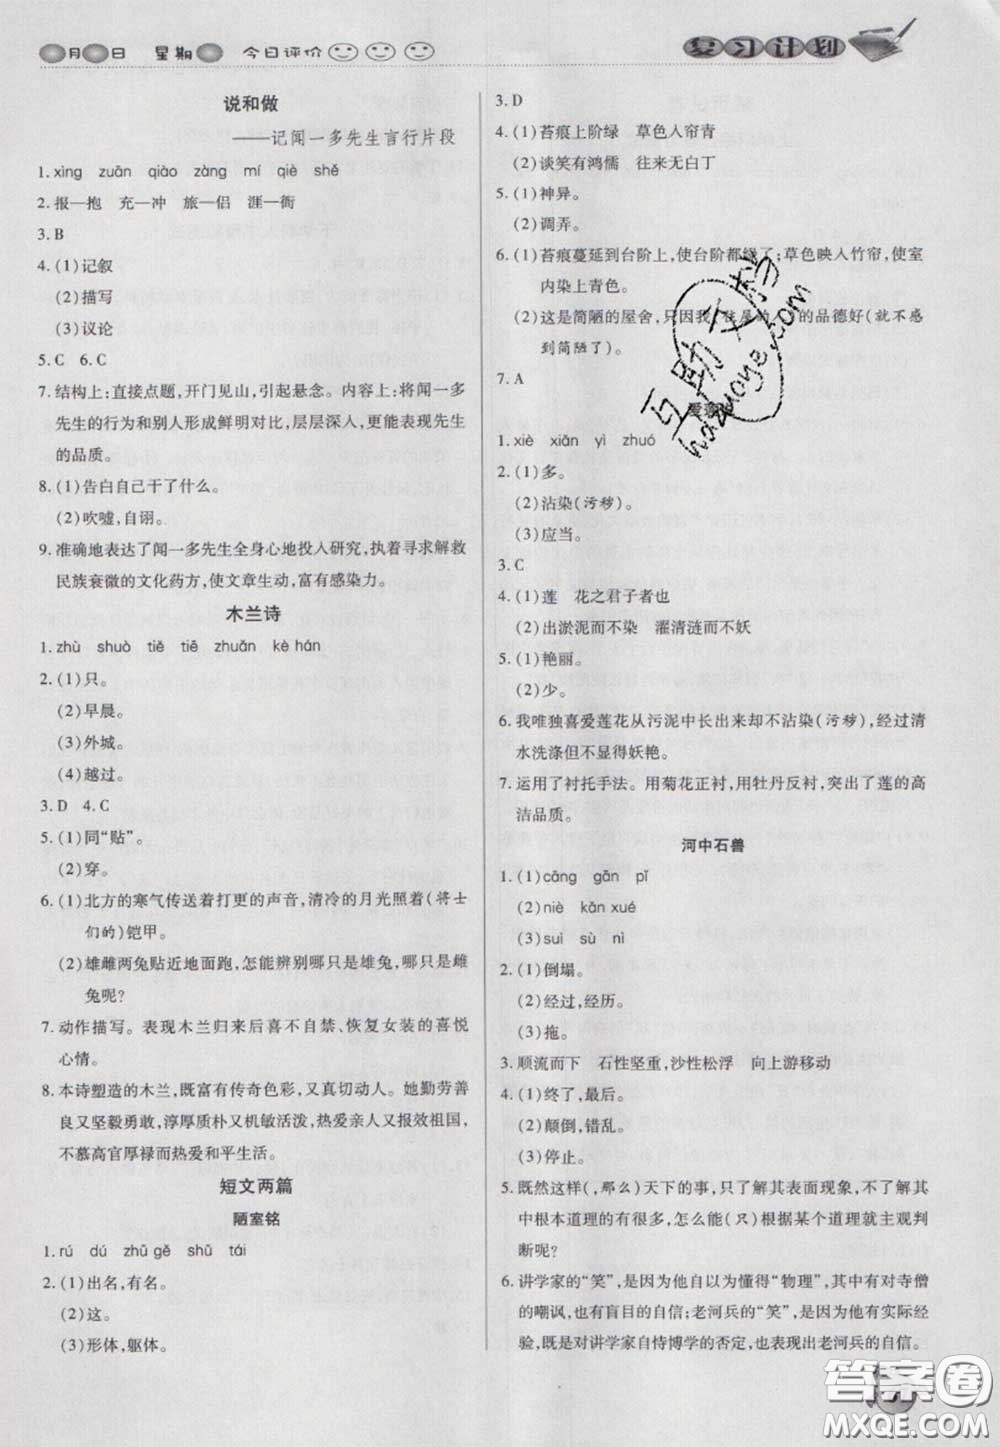 月 日 星期 今日评价
复习计划
说和做
——记闻一多先生言行片段
1. xìng zuān qiào zàng mí qiè shě
2. 报—抱 充—冲 旅—侣 涯—衙
3. B
4. (1)记叙
(2)描写
(3)议论
5. C 6. C
7. 结构上:直接点题,开门见山,引起悬念。内容上:将闻一多
先生的行为和别人形成鲜明对比,层层深入,更能表现先生
的品质。
8. (1)告白自己干了什么。
(2)吹嘘,自诩。
9. 准确地表达了闻一多先生全身心地投入研究,执着寻求解救
民族衰微的文化药方,使文章生动,富有感染力。
木兰诗
1. zhù shuò tiě tiē zhuǎn kè hán
2. (1)只。
(2)早晨。
(3)外城。
(4)越过。
3. D 4. C
5. (1)同“贴”。
(2)穿。
6. (1)北方的寒气传送着打更的声音,清冷的月光照着(将士
们的)铠甲。
(2)雄雌两兔贴近地面跑,怎能辨别哪只是雄兔,哪只是雌
兔呢?
7. 动作描写。表现木兰归来后喜不自禁、恢复女装的喜悦
心情。
8. 本诗塑造的木兰,既富有传奇色彩,又真切动人。她勤劳善
良又坚毅勇敢,淳厚质朴又机敏活泼,热爱亲人又报效祖国,
不慕高官厚禄而热爱和平生活。
短文两篇
陋室铭
1. rú dú zhū gě shū tái
2. (1)出名,有名。
(2)这。
(3)形体,躯体。
3. D
4. (1)苔痕上阶绿 草色入帘青
(2)谈笑有鸿儒 往来无白丁
5. (1)神异。
(2)调弄。
6. (1)苔痕蔓延到台阶上,使台阶都绿了;草色映入竹帘,使室
内染上青色。
(2)这是简陋的屋舍,只因我(住屋的人)的品德好(就不感
到简陋了)。
7. A
爱莲说
1. xiè xiān yì zhuó
2. (1)多。
(2)沾染(污秽)。
(3)应当。
3. C
4. (1)莲 花之君子者也
(2)出淤泥而不染 濯清涟而不妖
5. (1)艳丽。
(2)少。
6. 我唯独喜爱莲花从污泥中长出来却不沾染(污秽),经过清
水洗涤但不显得妖艳。
7. 运用了衬托手法。用菊花正衬,用牡丹反衬,突出了莲的高
洁品质。
河中石兽
1. (1)cāng gān pǐ
(2)niè kǎn xué
(3)suì sù nì
2. (1)倒塌。
(2)经过,经历。
(3)拖。
3. 顺流而下 石性坚重,沙性松浮 向上游移动
4. (1)终了,最后。
(2)颠倒,错乱。
(3)停止。
5. 既然这样(,那么)天下的事,只了解其表面现象,不了解其
中根本道理的有很多,怎么能(只)根据某个道理就主观判
断呢?
6. 讲学家的“笑”,是因为他自以为懂得“物理”,其中有对寺僧
的嘲讽,也有盲目的自信;老河兵的“笑”,是因为他有实际经
验,既是对讲学家自恃博学的否定,也表现出老河兵的自信。
互助文档
huzuoye.com
答案圈
MXQE.COM